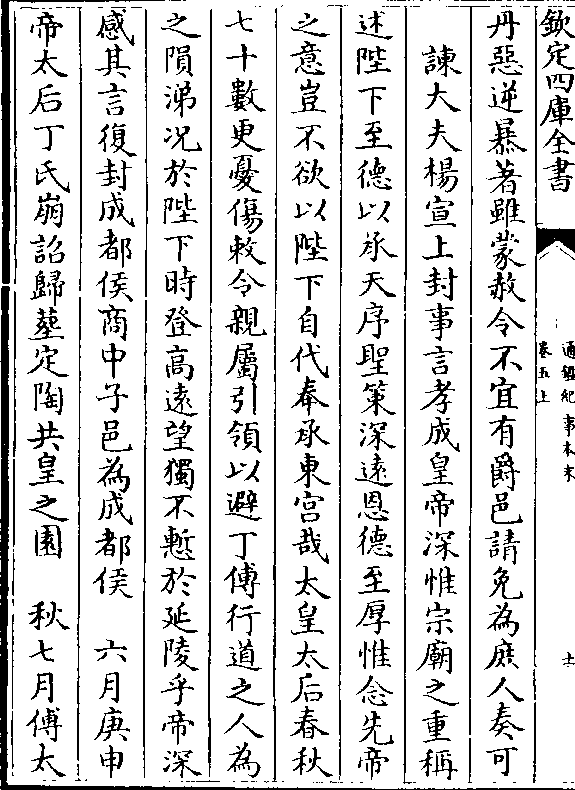 欽定四庫全書
通鑑紀事本末
卷五上
丹惡逆暴著雖蒙赦令不宜有爵邑請免為庶人奏可
諫大夫楊宣上封事言孝成皇帝深惟宗廟之重稱
述陛下至德以承天序聖策深遠恩德至厚惟念先帝
之意豈不欲以陛下自代奉承東宫哉太皇太后春秋
七十數更憂傷敕令親屬引領以避丁傅行道之人為
之隕涕况於陛下時登高遠望獨不慙於延陵乎帝深
感其言復封成都侯商中子邑為成都侯　六月庚申
帝太后丁氏崩詔歸塟定陶共皇之園　秋七月傅太